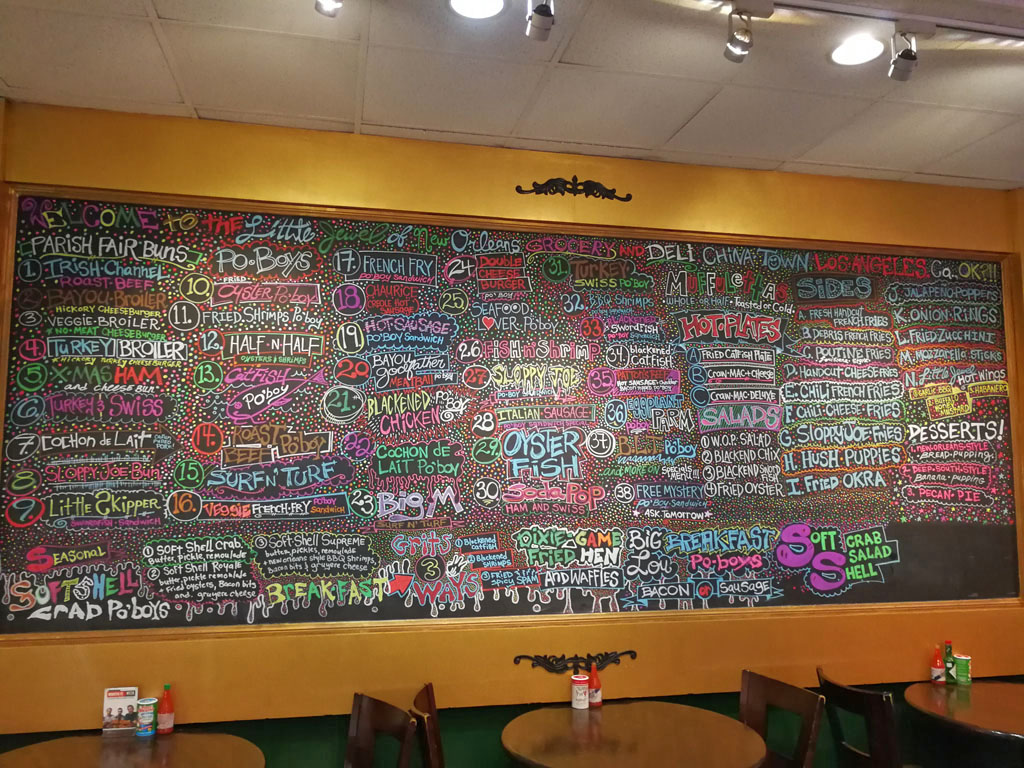 WELCOME TO THE Little Jewel of New Orleans GROCERY AND DELI CHINA TOWN, LOS ANGELES, Ca. OK?!!
PARISH FAIR BUNS
1. IRISH-CHANNEL
ROAST-BEEF
2. BAYOU-BROILER
HICKORY CHEESEBURGER
3. VEGGIE-BROILER
NO-MEAT CHEESEBURGER
4. TURKEY BROILER
HICKORY TURKEY CHEESEBURGER
5. X-MAS HAM
and CHEESE BUN
6. TURKEY & SWISS
7. COCHON de LAIT
8. SLOPPY-JOE BUN
9. LITTLE SKIPPER
SWORDFISH SANDWICH
PO-BOYS
10. FRIED
OYSTER PO'BOY
11. FRIED SHRIMPS PO'BOY
12. HALF-N-HALF
OYSTERS & SHRIMPS
13. CATFISH
PO'BOY
14. ROAST
BEEF PO'BOY
15. SURF N' TURF
16. VEGGIE FRENCH-FRY PO'BOY
SANDWICH
17. FRENCH FRY
PO'BOY SANDWICH
18. CHAURICE
CREOLE HOT
19. HOT-SAUSAGE
PO'BOY SANDWICH
20. BAYOU
godfather
MEATBALL
21. BLACKENED PO'BOY
CHICKEN
22. COCHON DE
LAIT PO'BOY
23. BIG M
SURF N' TURF
24. DOUBLE
CHEESE
BURGER
PO'BOY
25. SEAFOOD
LOVER PO'BOY
26. FISH N SHRIMP
27. SLOPPY JOE
28. ITALIAN-SAUSAGE
29. OYSTER
FISH
30. SODA POP
HAM AND SWISS
31. TURKEY
SWISS PO'BOY
32. B.B.Q SHRIMPS
33. SWORDFISH
34. Blackened
Catfish
35.
HOT SAUSAGE
36.
PARM
37.
AND MORE ON Specials
38. FREE MYSTERY
* ASK TOMORROW *
MUFFULETTAS
WHOLE or HALF • Toasted or Cold
HOT-PLATES
A FRIED CATFISH PLATE
B CRAW-MAC & CHEESE
C CRAW-MAC-DELUXE
SALADS
1 W.O.P. SALAD
2 BLACKEND CHIX
3 BLACKEND SWORD FISH
4 FRIED OYSTER
SIDES
A. FRESH HANDCUT
FRENCH FRIES
B. DEBRIS FRENCH FRIES
C. POUTINE FRIES
D. HANDCUT-CHEESE FRIES
E. CHILI FRENCH FRIES
F. CHILI-CHEESE-FRIES
G. SLOPPY JOE-FRIES
H. HUSH-PUPPIES
I. FRIED OKRA
J. JALAPEÑO-POPPERS
K. ONION-RINGS
L. FRIED ZUCCHINI
M. MOZZARELLA STICKS
N. Little Jewel
HOT WINGS
HABANERO
DESSERTS!
1. ORLEANS-STYLE
BREAD-PUDDING
2. DEEP-SOUTH-STYLE
Banana-Pudding
3. PECAN-PIE
SEASONAL
SOFTSHELL
CRAB PO'BOYS
1 SOFT SHELL CRAB
butter, pickle, remoulade
2 SOFT SHELL ROYALE
butter, pickle, remoulade
fried oysters, Bacon bits
and, gruyere cheese
3 SOFTSHELL SUPREME
butter, pickles, remoulade
+ new orleans style BBQ Shrimps,
bacon bits & gruyere cheese
BREAKFAST
GRITS
3
WAYS
1 Blackened
CATFISH
2 Blackened
SHRIMPS
3 FRIED
spicy SPAM
DIXIE GAME
FRIED HEN
AND WAFFLES
BIG
LOU
BREAKFAST
PO-BOYS
BACON or SAUSAGE
SOFT
SHELL
CRAB
SALAD